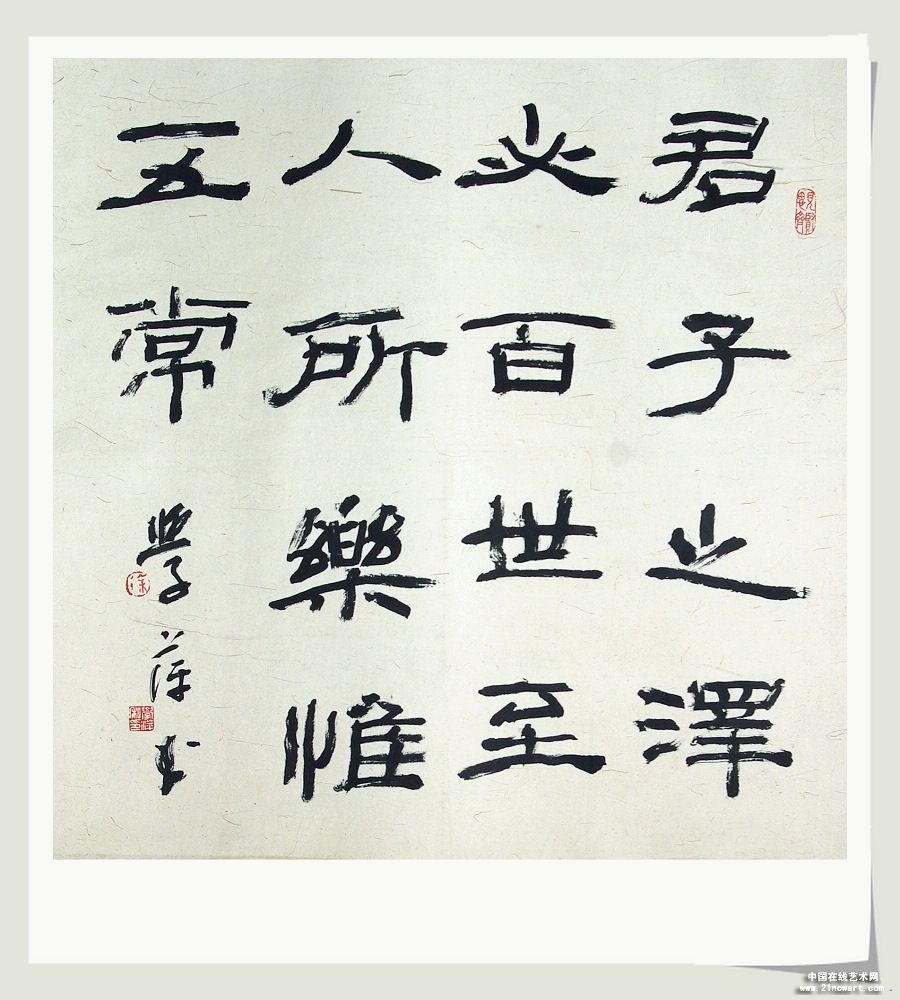 君子之澤
必百世至
人所樂惟
五常
學萍书
中国在线艺术网
www.21nowart.com